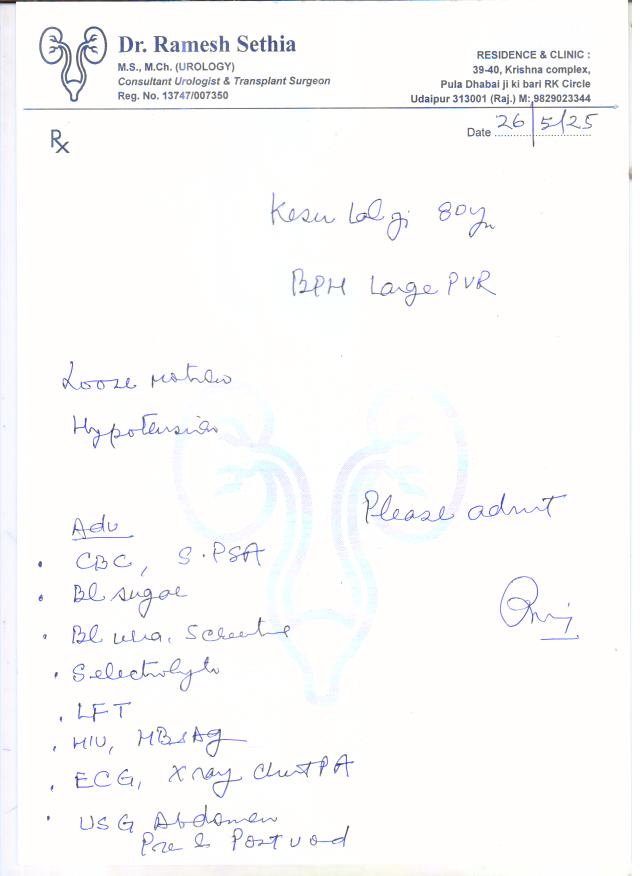 Dr. Ramesh Sethia
M.S., M.Ch. (UROLOGY)
Consultant Urologist & Transplant Surgeon
Reg. No. 13747/007350
RESIDENCE & CLINIC :
39-40, Krishna complex,
Pula Dhabai ji ki bari RK Circle
Udaipur 313001 (Raj.) M: 9829023344
Rx
Date 26/5/25
Kesu Lal ji 80yr
BPH Large PVR
Loose motion
Hypotension
Please admit
Adv
• CBC, S.PSA
• Bl sugar
• Bl urea, S creatine
• S electrolyte
• LFT
• HIV, HBsAg
• ECG, X ray Chest PA
• USG Abdomen
Pre & Post void